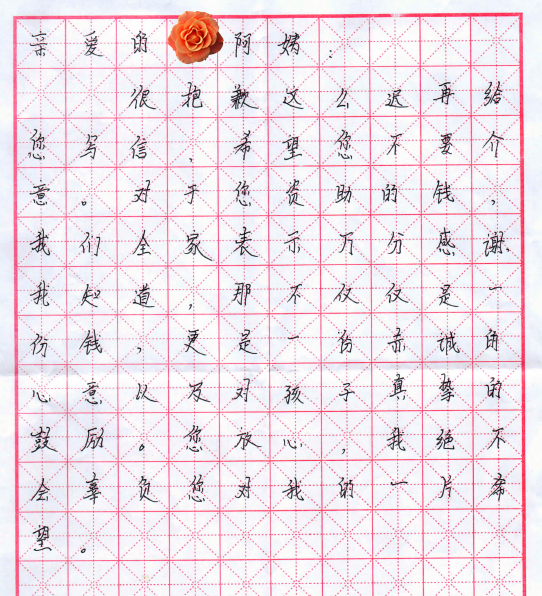 亲爱的 阿姨：
很抱歉这么迟再给
您写信，希望您不要介
意。对于您资助的钱，
我们全家表示万分感谢.
我知道，那不仅仅是一
份钱，更是一份赤诚的
心意以及对孩子真挚的
鼓励。您放心，我绝不
会辜负您对我的一片希
望。